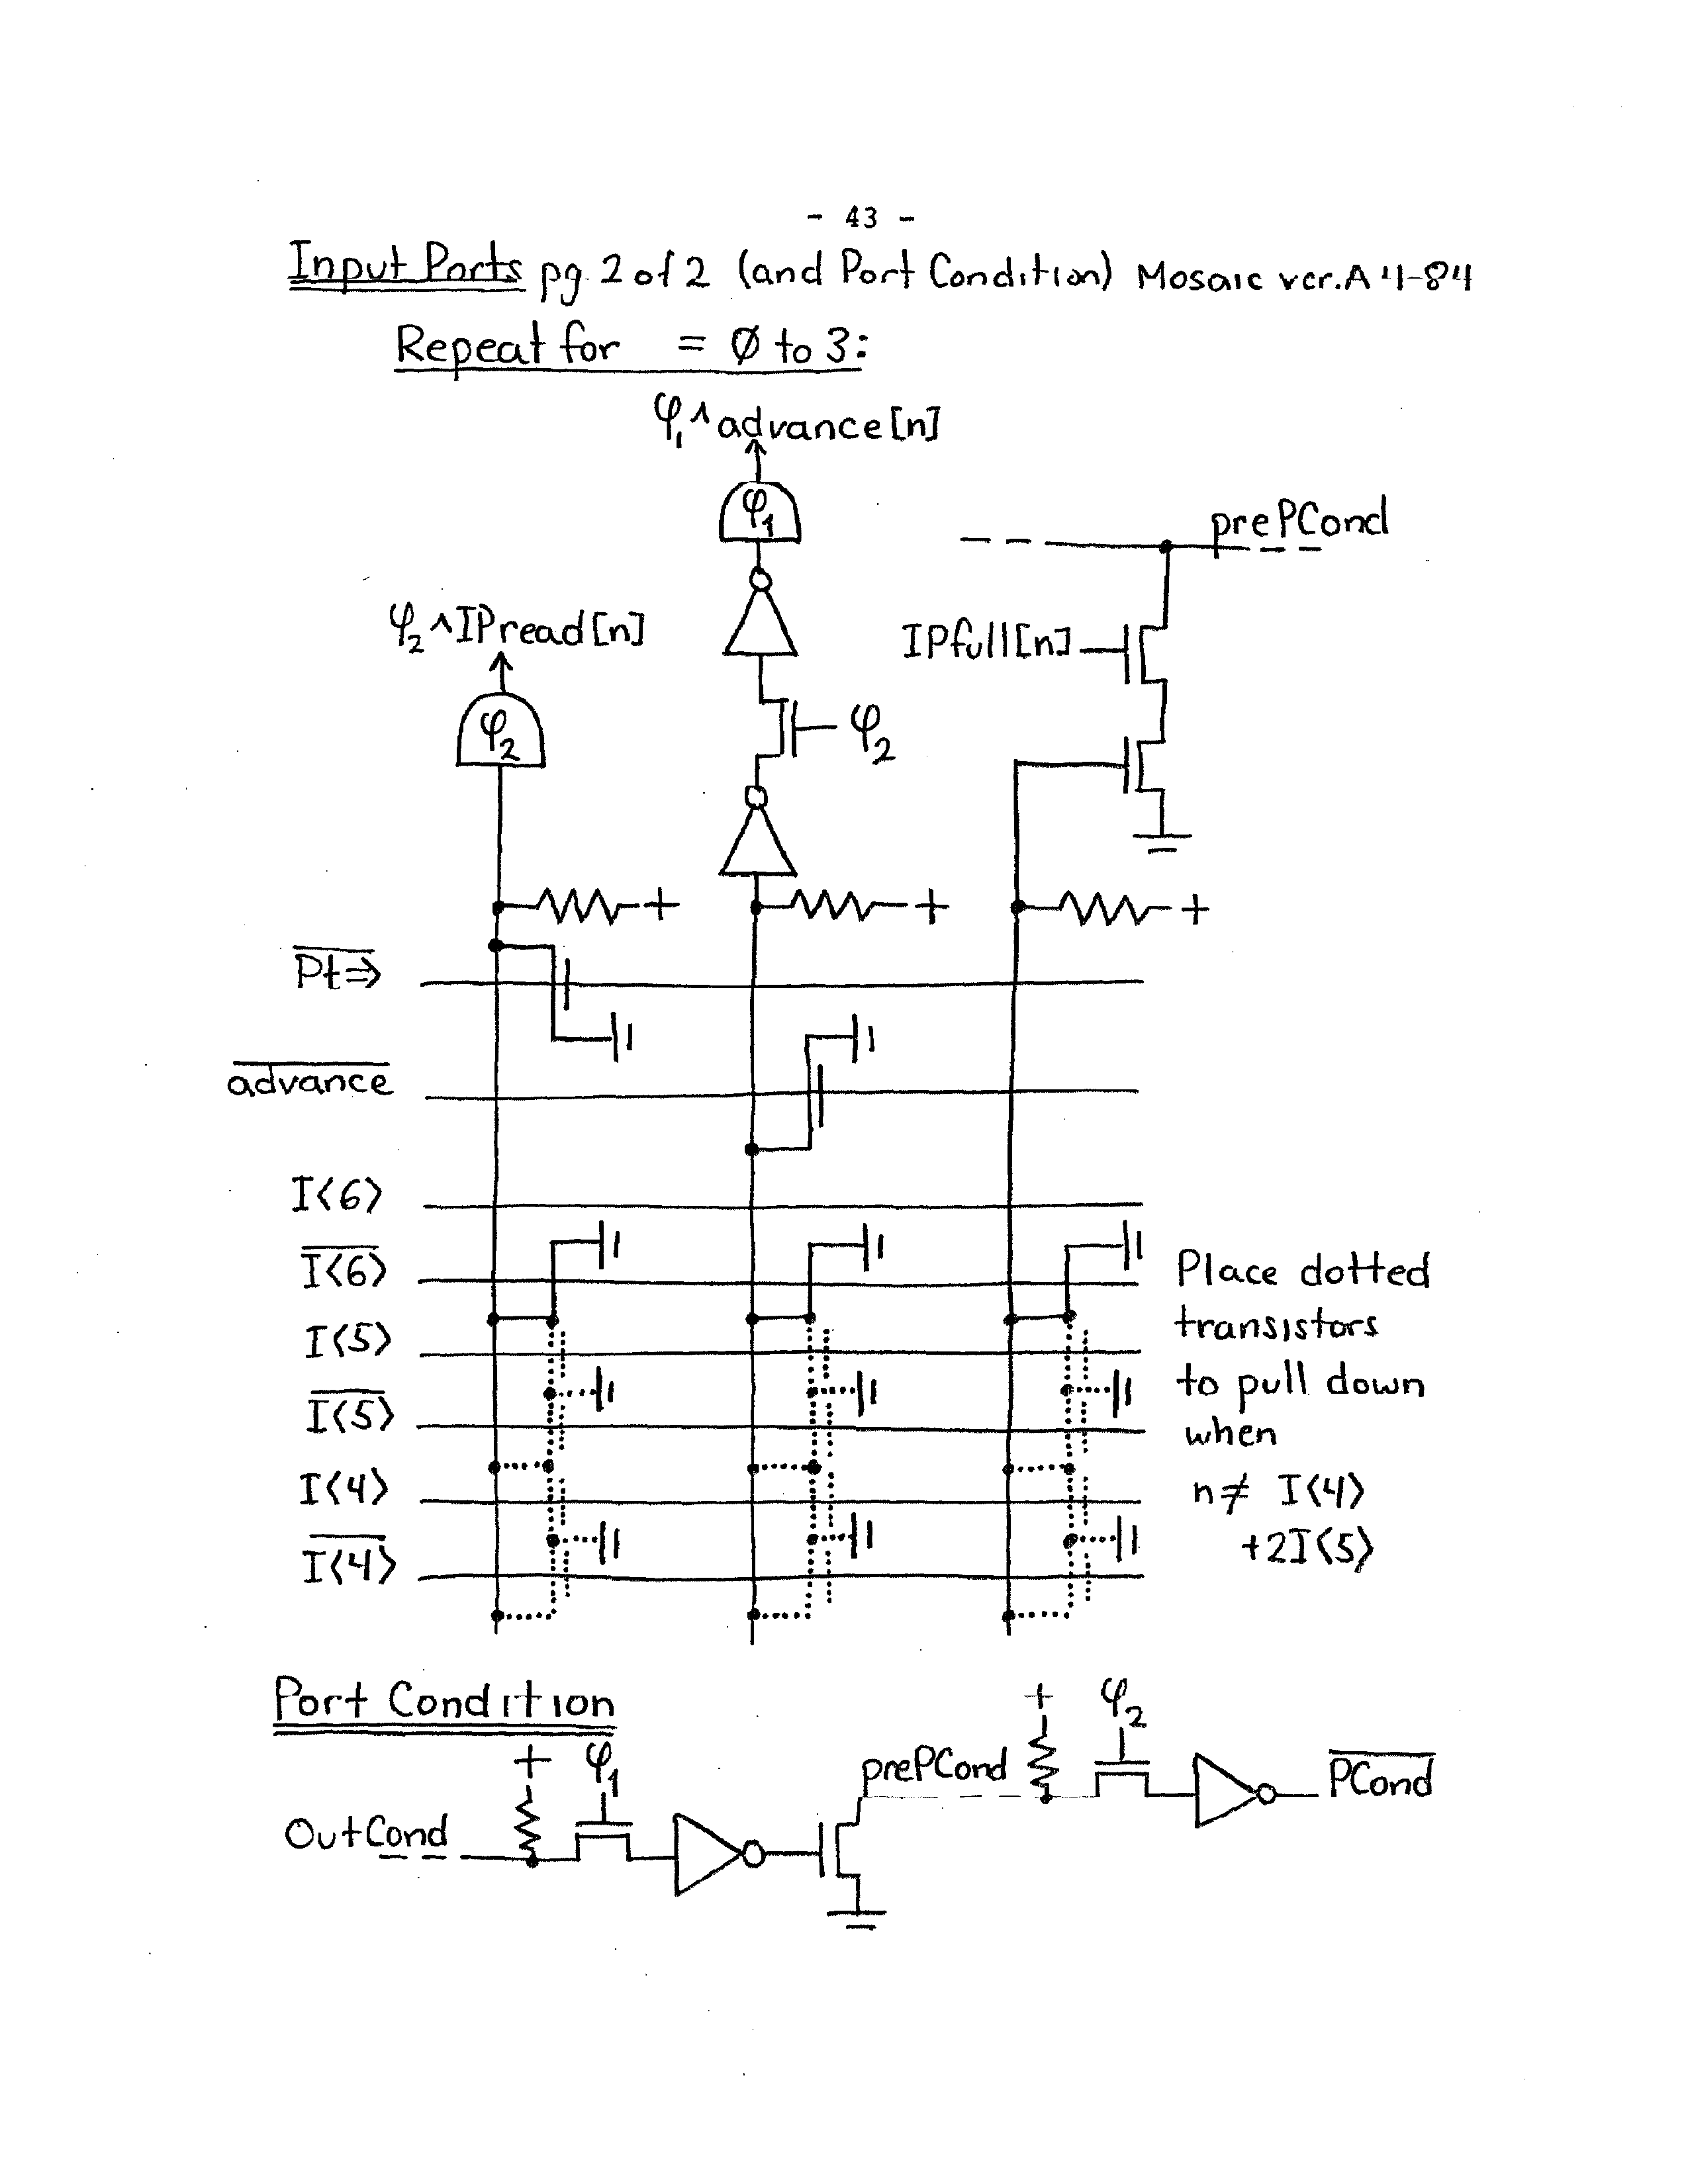 - 43 -
Input Ports pg. 2 of 2 (and Port Condition) Mosaic ver.A 4-84
Repeat for = Ø to 3:
φ₁ ^ advance[n]
φ₁
prePCond
φ₂ ^ IPread[n]
IPfull[n]
φ₂
φ₂
+ + +
P̅t̅⇒̅
a̅d̅v̅a̅n̅c̅e̅
I⟨6⟩
I̅⟨̅6̅⟩̅
Place dotted
I⟨5⟩
transistors
to pull down
I̅⟨̅5̅⟩̅
when
I⟨4⟩
n ≠ I⟨4⟩
I̅⟨̅4̅⟩̅
+2I⟨5⟩
Port Condition
+ φ₂
+ φ₁
prePCond
P̅C̅o̅n̅d̅
OutCond